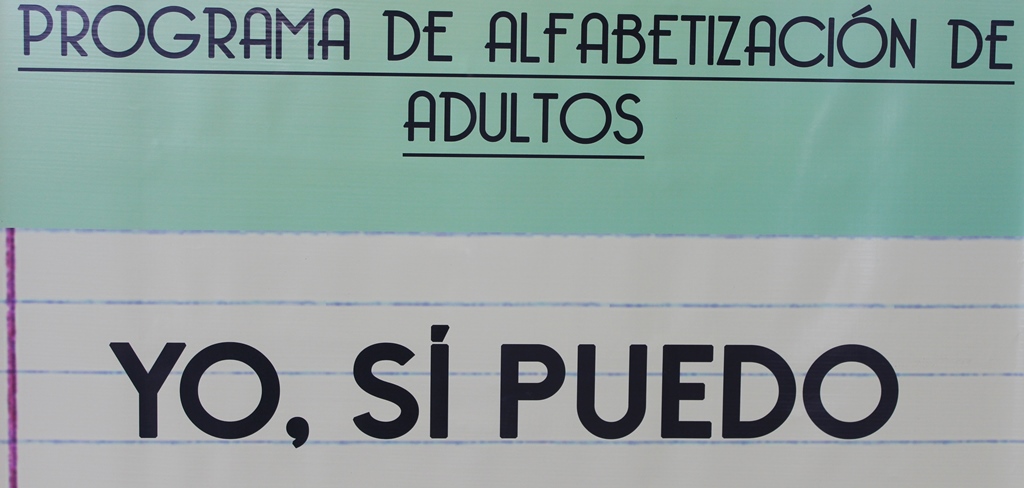 PROGRAMA DE ALFABETIZACIÓN DE
ADULTOS
YO, SÍ PUEDO